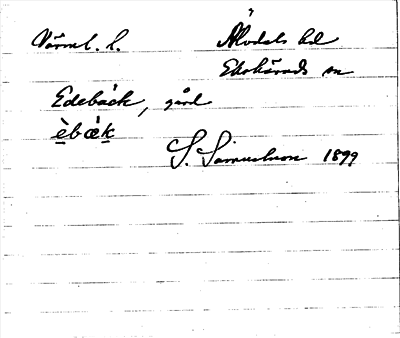 Värml. l. Älvdals hd
Ekshärads sn
Edebäck, gård
è̱bæ̀ḵ
S. Samuelsson 1899